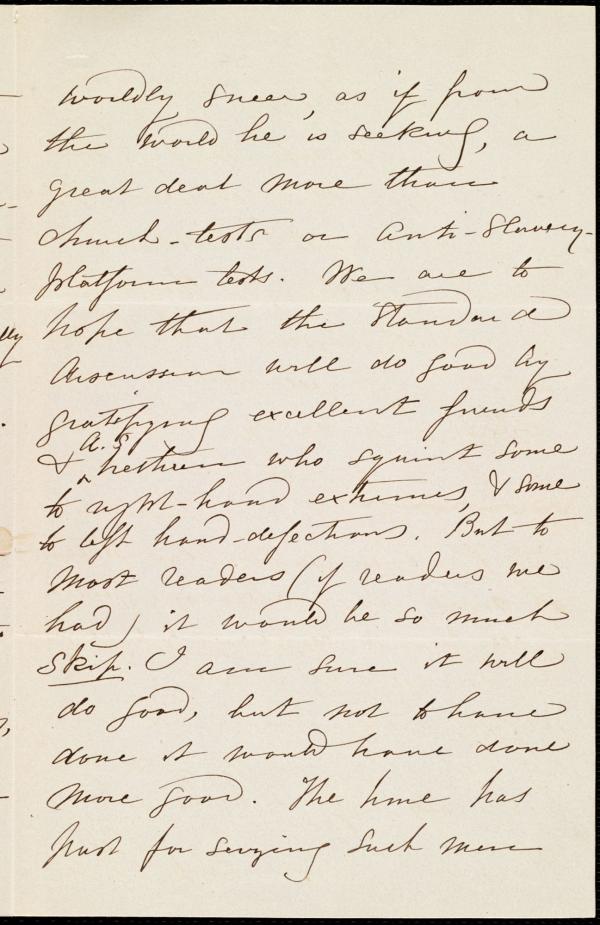 worldly sneer, as if from
the world he is seeking, a
great deal more than
church-tests or Anti-Slavery-
platform tests. We are to
hope that the Standard
discussion will do good by
gratifying excellent friends
& a.s. brethren who squint some
to right-hand extremes, & some
to left hand-defections. But to
most readers (if readers we
had) it would be so much
skip. I am sure it will
do good, but not to have
done it would have done
more good. The time has
past for seizing such men